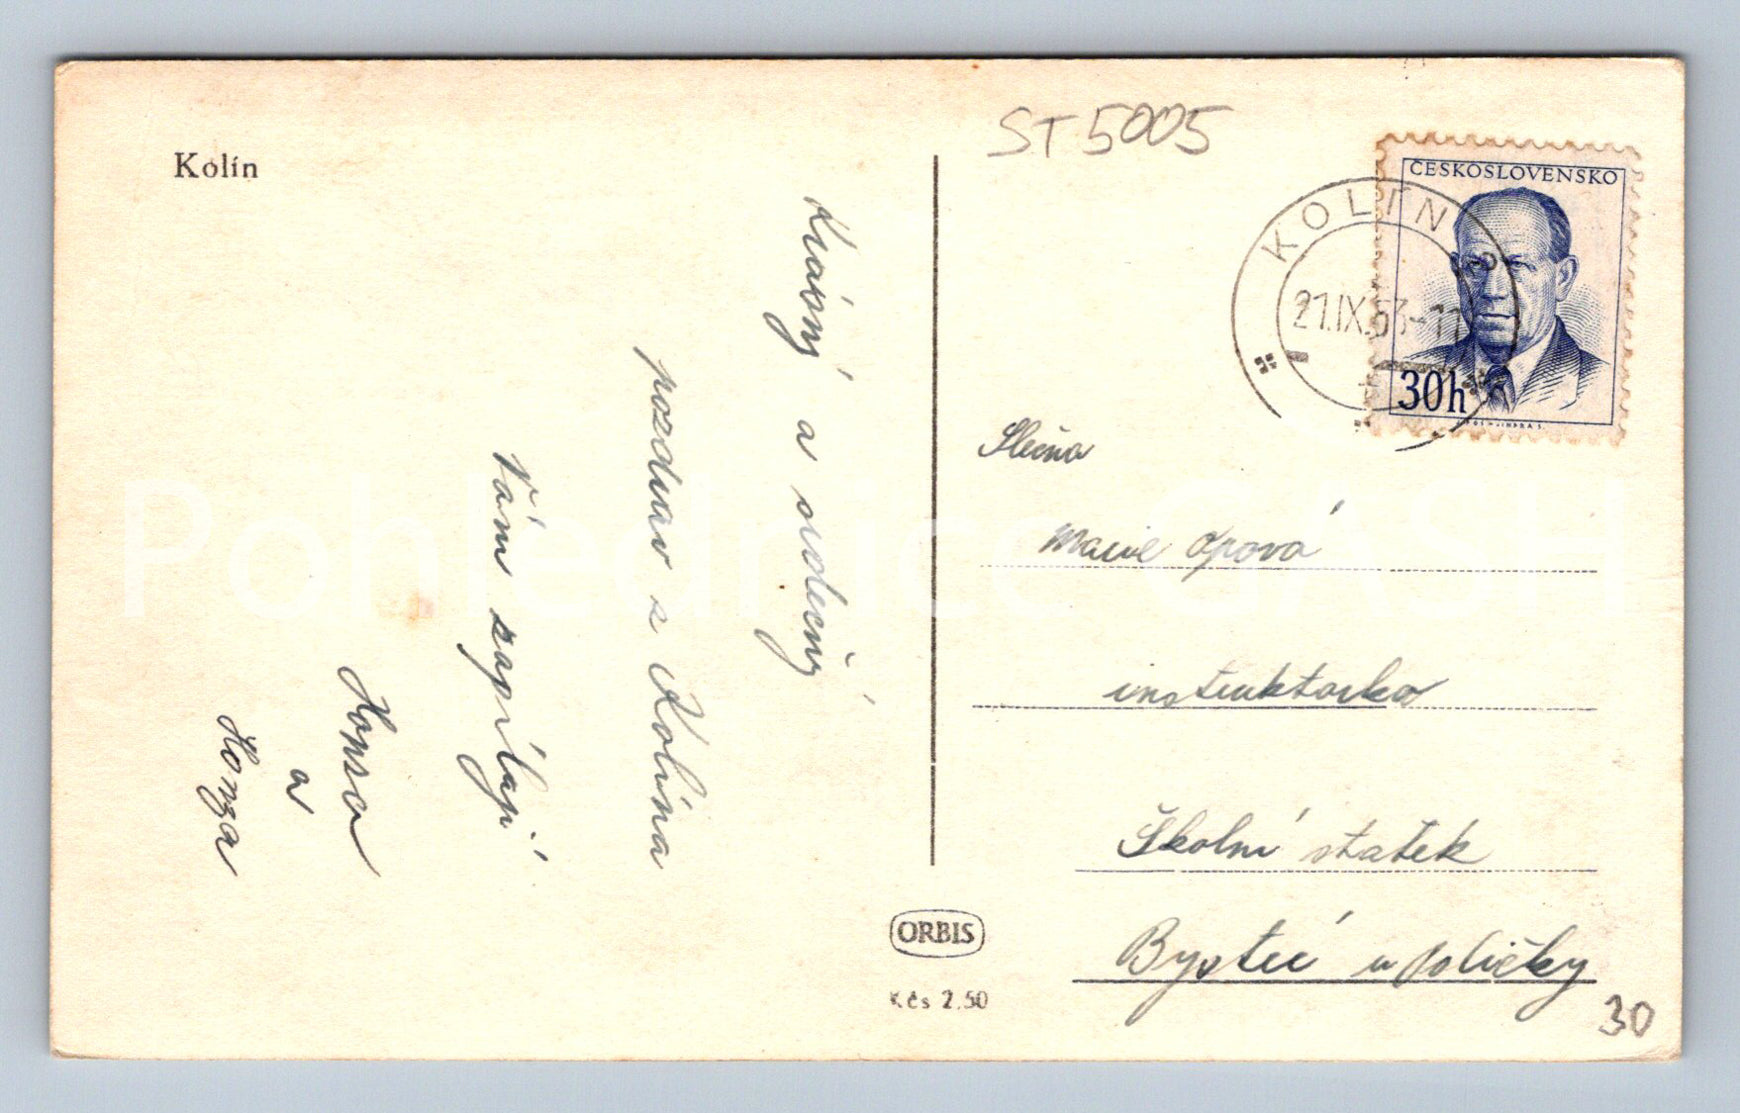 Kolín
Krásný a srdečný
pozdrav z Kolína
Vám zasílají
Honza
a
Honza
ST5005
ČESKOSLOVENSKO
30h
KOLÍN
21.IX.53-11
Slečna
Marie Opová
instruktorka
Školní statek
Bystré u Poličky
ORBIS
Kčs 2.50
30
Pohlednice GASH